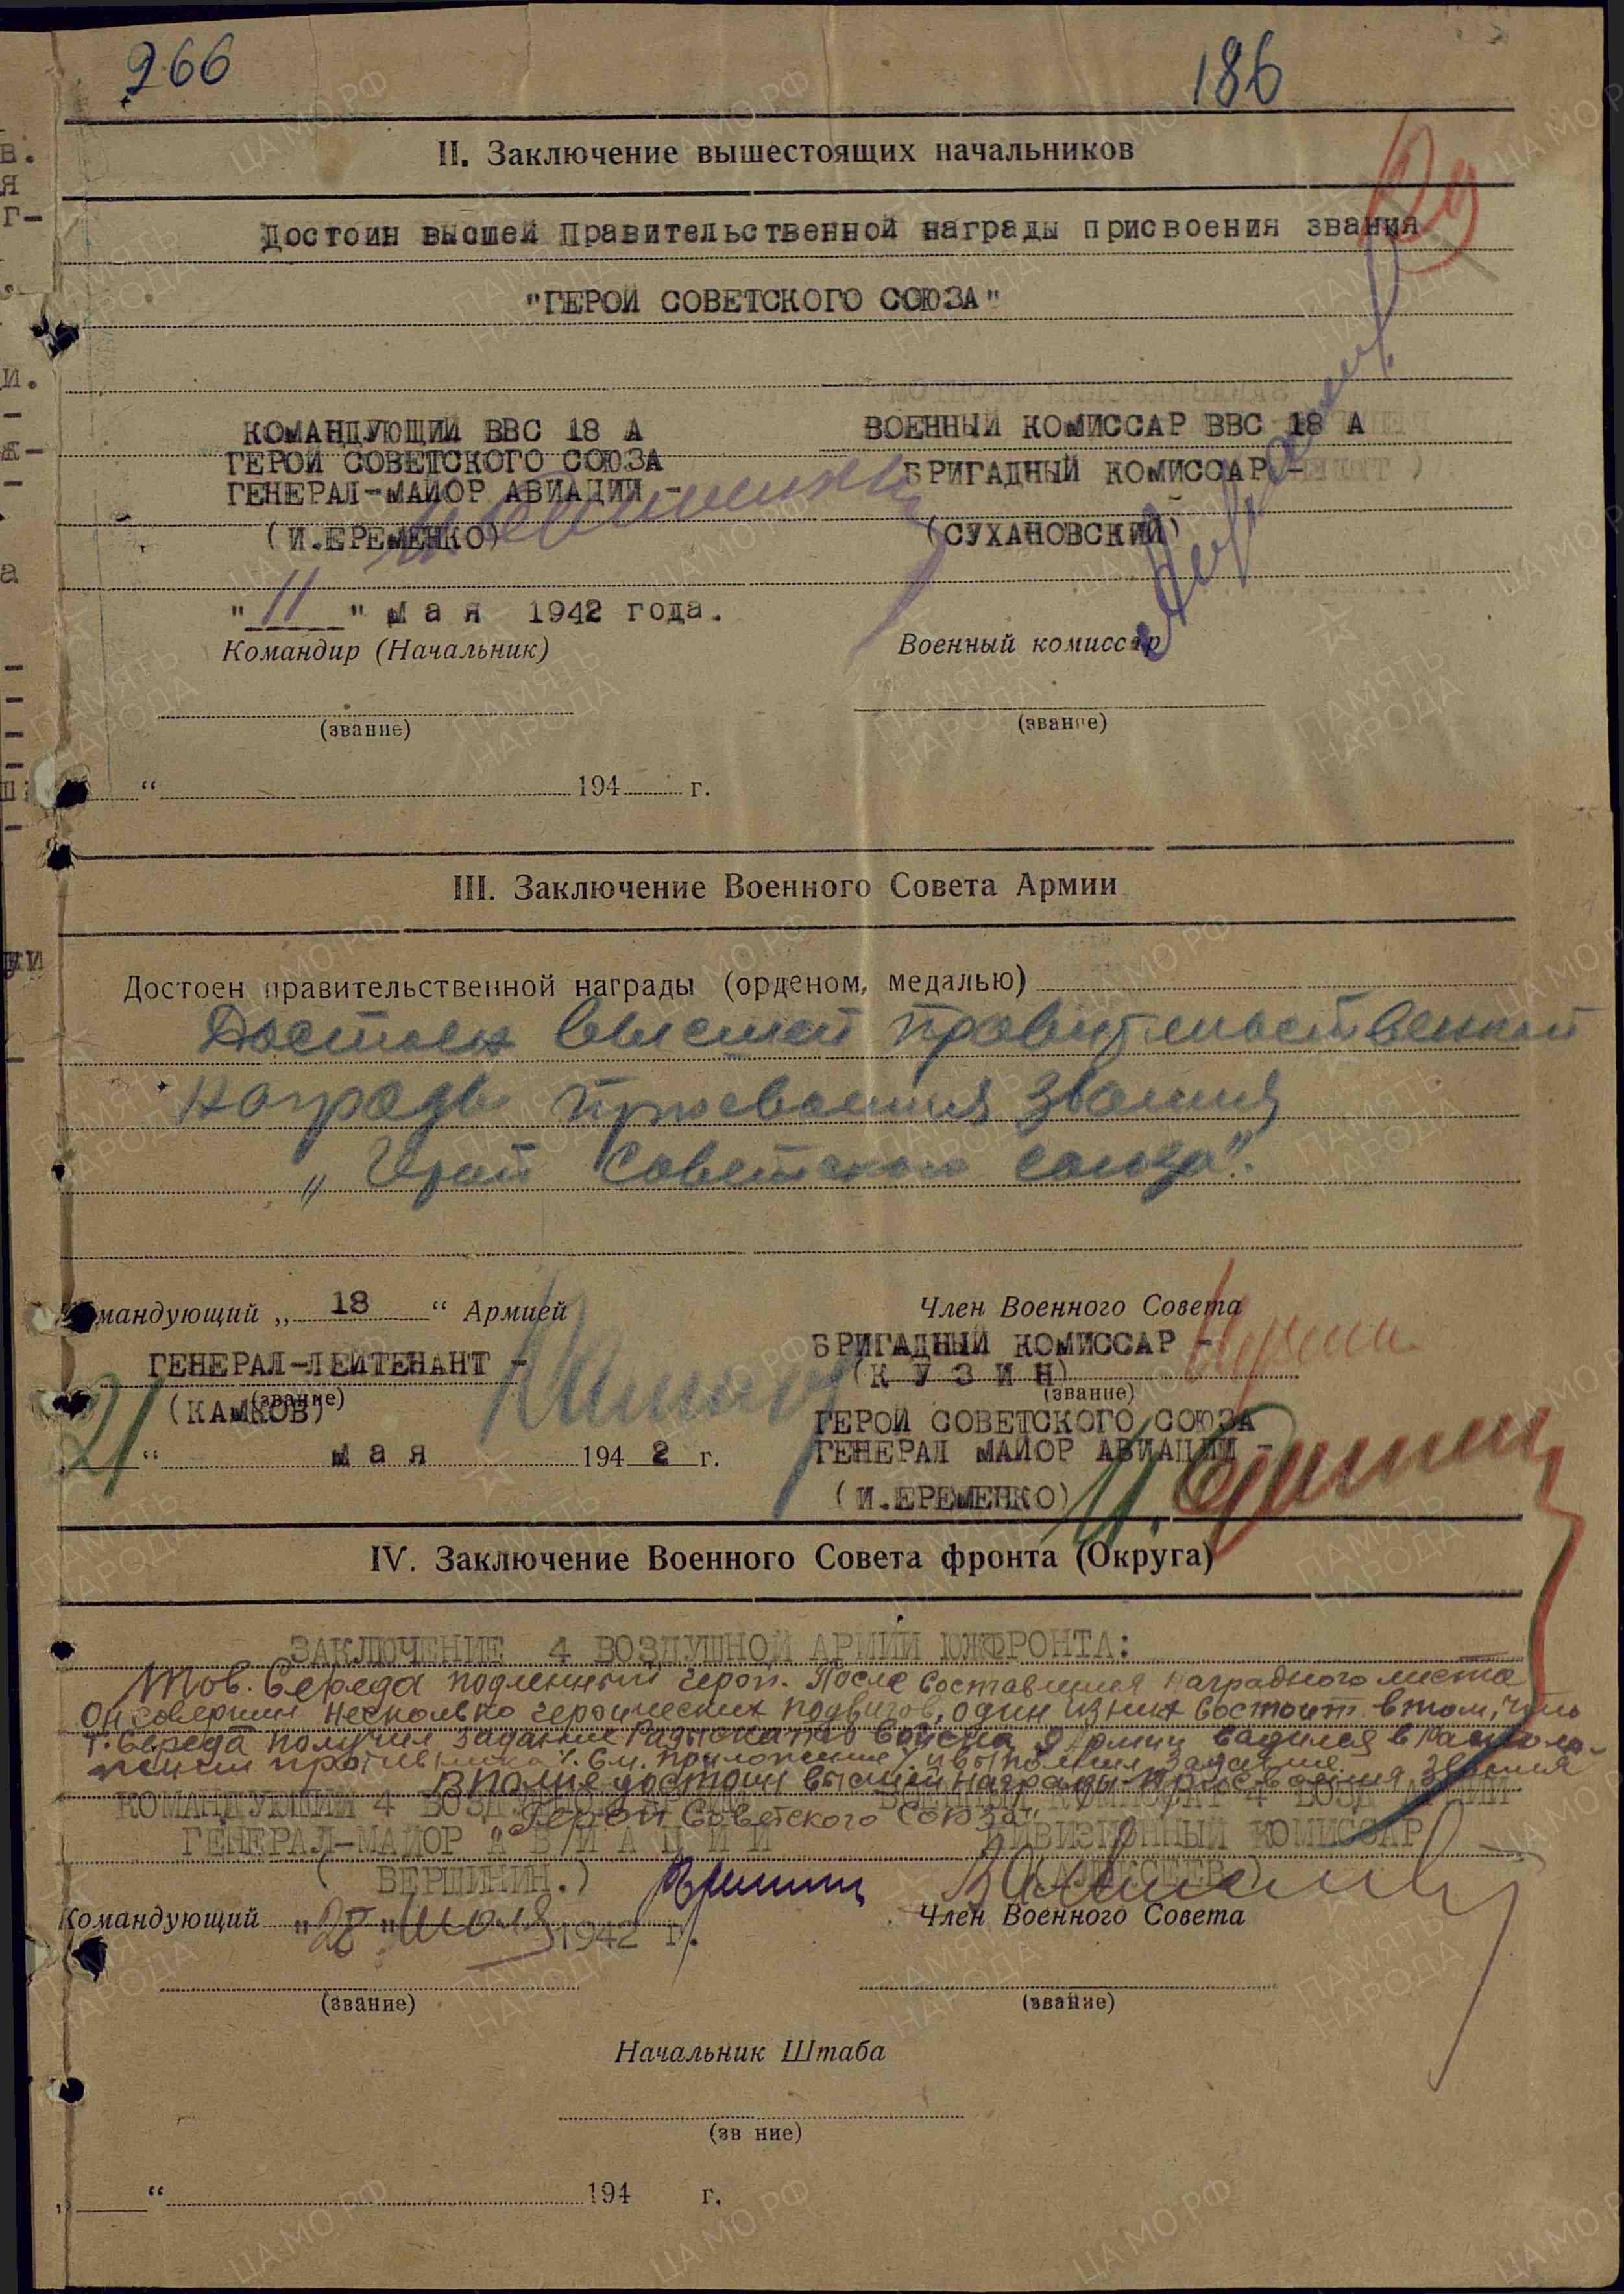 266
186
II. Заключение вышестоящих начальников
Достоин высшей Правительственной награды присвоения звания
"ГЕРОЙ СОВЕТСКОГО СОЮЗА"
КОМАНДУЮЩИЙ ВВС 18 А
ГЕРОЙ СОВЕТСКОГО СОЮЗА
ГЕНЕРАЛ-МАЙОР АВИАЦИИ -
(И.ЕРЕМЕНКО)
"11" мая 1942 года.
Командир (Начальник)
(звание)
“ 194 г.
ВОЕННЫЙ КОМИССАР ВВС 18 А
БРИГАДНЫЙ КОМИССАР -
(СУХАНОВСКИЙ)
Военный комиссар
(звание)
III. Заключение Военного Совета Армии
Достоен правительственной награды (орденом, медалью)
Достоен высшей правительственной
награды присвоения звания
„Герой Советского Союза".
Командующий „ 18 “ Армией
ГЕНЕРАЛ-ЛЕЙТЕНАНТ -
(звание)
(КАМКОВ)
21 “ мая 1942 г.
Член Военного Совета
БРИГАДНЫЙ КОМИССАР -
(К У З И Н)
(звание)
ГЕРОЙ СОВЕТСКОГО СОЮЗА
ГЕНЕРАЛ МАЙОР АВИАЦИИ -
(И.ЕРЕМЕНКО)
IV. Заключение Военного Совета фронта (Округа)
ЗАКЛЮЧЕНИЕ 4 ВОЗДУШНОЙ АРМИИ ЮЖФРОНТА:
Тов. Середа подленный герой. После составления наградного листа
Он совершил несколько героических подвигов, один из них состоит в том, что
т. Середа получил задание разыскать войска 9 Армии садился в располо-
жении противника /. См. приложение / и выполнил задание.
Вполне достоин высшей награды - присвоения звания
"Герой Советского Союза"
КОМАНДУЮЩИЙ 4 ВОЗДУШНОЙ АРМИИ
ГЕНЕРАЛ-МАЙОР АВИАЦИИ
( ВЕРШИНИН.)
ВОЕННЫЙ КОМИССАР 4 ВОЗД АРМИИ
ДИВИЗИОННЫЙ КОМИССАР
(АЛЕКСЕЕВ)
Командующий "28" июля 1942 г.
Член Военного Совета
(звание)
(звание)
Начальник Штаба
(зв ние)
“ 194 г.
ЦА МО РФ
ПАМЯТЬ НАРОДА